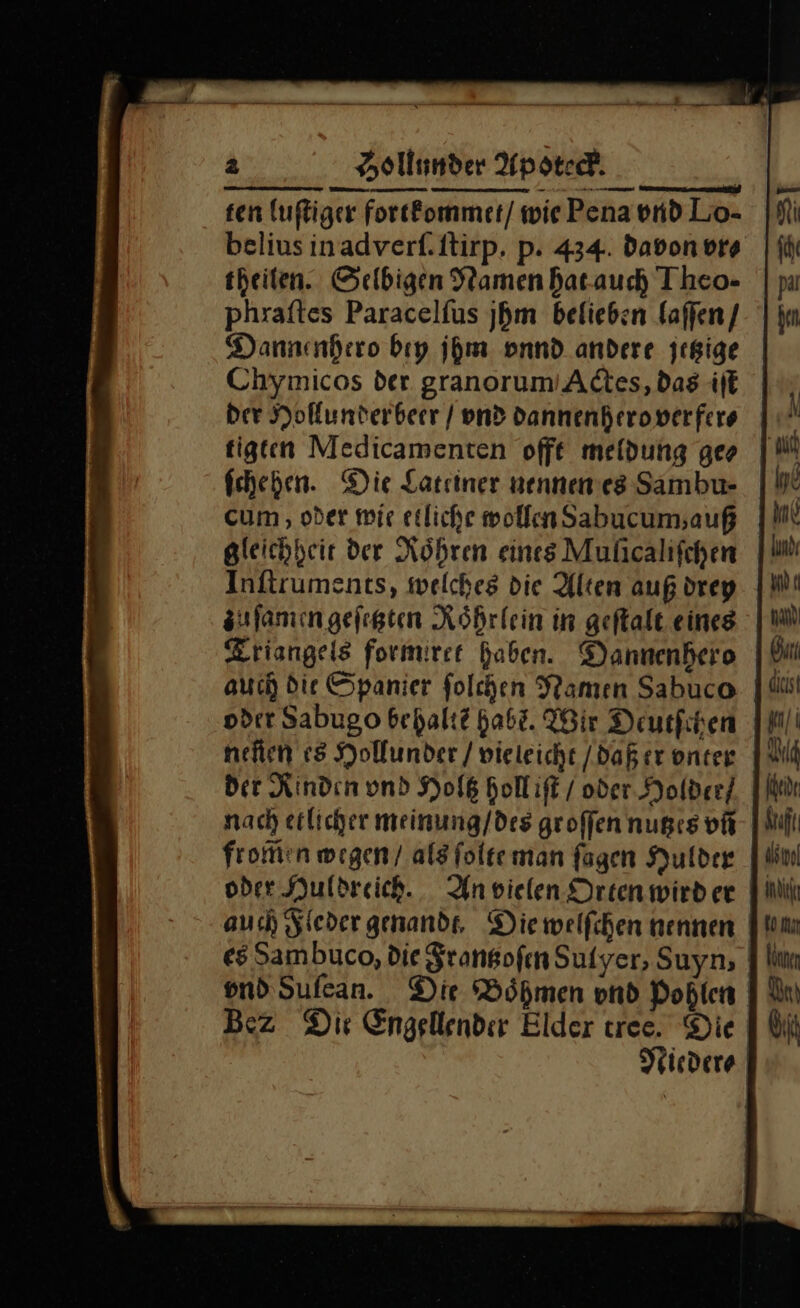 2 Hollunder Apoteck.
ten luſtiger fortkommet/ wie Pena vnd Lo-
belius in adverſ. ſtirp. p. 434. davon vr-
theilen. Selbigen Namen hat auch Theo-
phraſtes Paracelſus jhm belieben laſſen/
Dannenhero bey jhm vnnd andere jetzige
Chymicos der granorum Actes, das iſt
der Hollunderbeer / vnd dannenhero verfer-
tigten Medicamenten offt meldung ge-
ſchehen. Die Lateiner nennen es Sambu-
cum, oder wie etliche wollen Sabucum, auß
gleichheit der Roͤhren eines Muſicaliſchen
Inſtruments, welches die Alten auß drey
zuſamen geſetzten Roͤhrlein in geſtalt eines
Triangels formiret haben. Dannenhero
auch die Spanier ſolchen Namen Sabuco
oder Sabugo behaltẽ habẽ. Wir Deutſchen
neñen es Hollunder / vieleicht / daß er vnter
der Rinden vnd Holtz holl iſt / oder Holder/
nach etlicher meinung/des groſſen nutzes vñ
from̃en wegen / als ſolte man ſagen Hulder
oder Huldreich. An vielen Orten wird er
auch Flieder genandt. Die welſchen nennen
es Sambuco, die Frantzoſen Sulyer, Suyn,
vnd Suſean. Die Boͤhmen vnd Pohlen
Bez Die Engellender Elder tree. Die
Nieder-